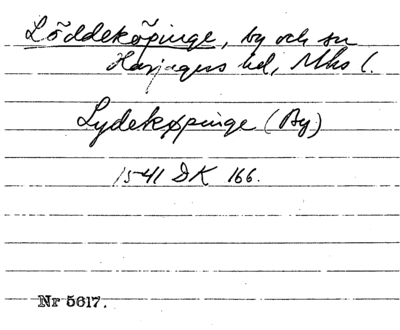 Löddeköpinge, by och sn
Harjagers hd, Mhs l.
Lydekøpinge (By)
1541 DK 166.
Nr 5617.